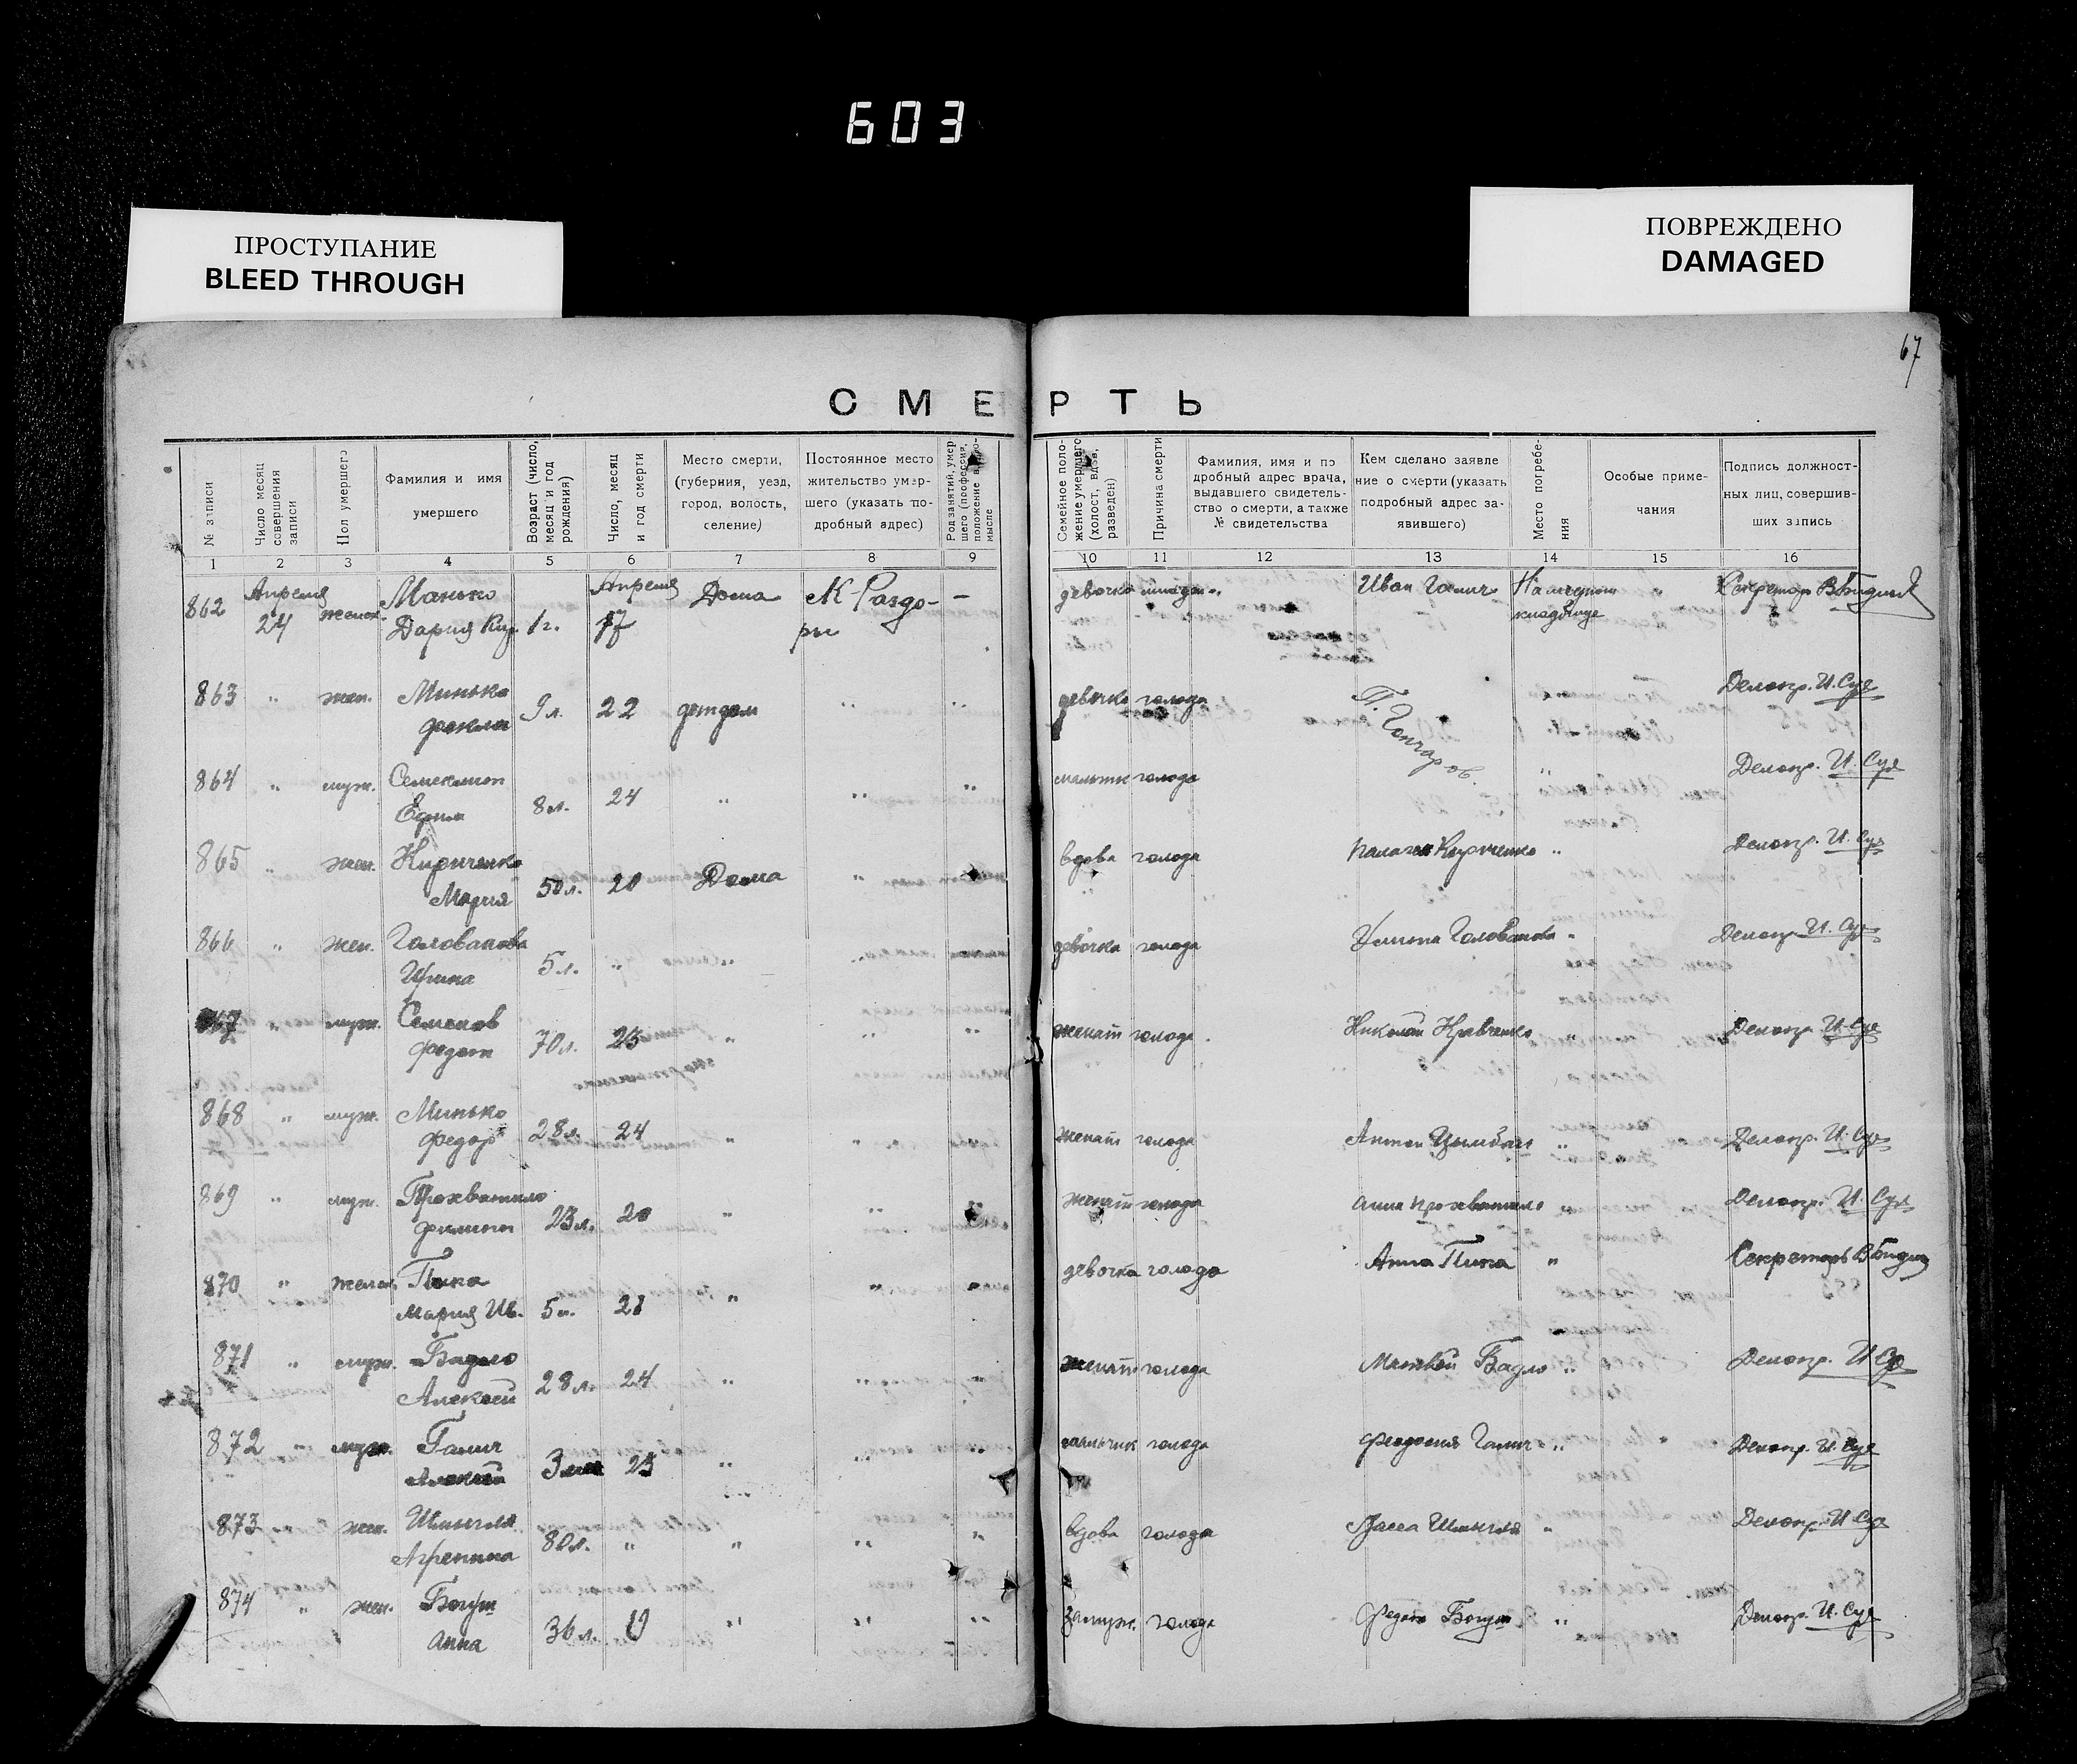 603
ПРОСТУПАНИЕ
BLEED THROUGH
ПОВРЕЖДЕНО
DAMAGED
67
СМЕРТЬ
№ записи
Число месяц совершения записи
Пол умершего
Фамилия и имя
умершего
Возраст (число, месяц и год рождения)
Число, месяц и год смерти
Место смерти,
(губерния, уезд,
город, волость,
селение)
Постоянное место
жительство умер-
шего (указать по-
дробный адрес)
Род занятий, умер
шего (профессия,
положение в про-
мысле
Семейное поло-
жение умершего
(холост, вдов,
разведен)
Причина смерти
Фамилия, имя и по
дробный адрес врача,
выдавшего свидетель-
ство о смерти, а также
№ свидетельства
Кем сделано заявле
ние о смерти (указать
подробный адрес за-
явившего)
Место погребе-
ния
Особые приме-
чания
Подпись должност-
ных лиц, совершив-
ших запись
1 2 3 4 5 6 7 8 9 10 11 12 13 14 15 16
862 Апреля 24 Манько Дария 1 г. Апреля 17 Дома К-Раздо-
ры – девочка Иван Галич На
кладбище Секретарь
863 " жен. Минько Фекла 9 л. 22 детдом " " девочка голода П. Гончаров. Делопр. И. Суд
864 " муж. 8 л. 24 " " " голода " Делопр. И. Суд
865 " жен. Кириченко Мария 50 л. 20 Дома " вдова голода Кириченко " Делопр. И. Суд
866 " жен. Голованова Ирина 5 л. " " " девочка голода Голованова " Делопр. И. Суд
867 " муж. Семенов Федот 70 л. 23 " " " женат голода Николай Кравченко " Делопр. И. Суд
868 " муж. Минько Федор 28 л. 24 " " женат голода Антон Цымбал " Делопр. И. Суд
869 " муж. Прохватило Филипп 23 л. 20 " " женат голода Анна Прохватило " Делопр. И. Суд
870 " Пипа Мария Ив. 5 л. 21 " " " девочка голода Анна Пипа " Секретарь
871 " муж. Бадло Алексей 28 л. 24 " " " женат голода Матвей Бадло " Делопр. И Суд
872 " муж. Галич Алексей 3 23 " " " мальчик голода Феодосия Галич " Делопр. И. Суд
873 жен. Агрепина 80 л. " " " " вдова голода " Делопр. И Суд
874 " жен. Богуш Анна 36 л. " " " замуж. голода Богуш " Делопр. И. Суд